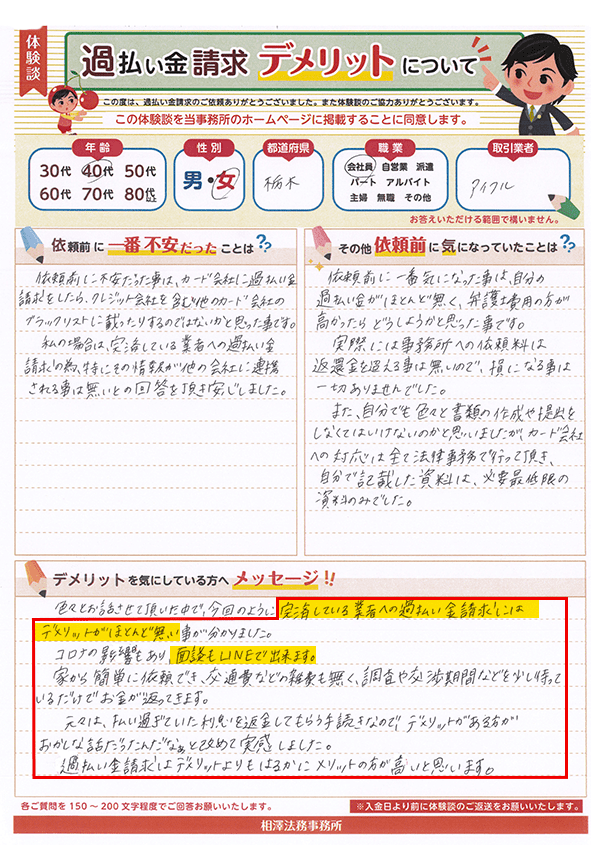 体験談
過払い金請求 デメリットについて
この度は、過払い金請求のご依頼ありがとうございました。また体験談のご協力ありがとうございます。
この体験談を当事務所のホームページに掲載することに同意します。
年齢
30代 40代 50代
60代 70代 80代以上
性別
男・女
都道府県
栃木
職業
会社員 自営業 派遣
パート アルバイト
主婦 無職 その他
取引業者
アイフル
お答えいただける範囲で構いません。
依頼前に一番不安だったことは??
依頼前に不安だった事は、カード会社に過払い金
請求をしたら、クレジット会社を含む他のカード会社の
ブラックリストに載ったりするのではないかと思った事です。
私の場合は、完済している業者への過払い金
請求の為、特にその情報が他の会社に連携
される事は無いとの回答を頂き安心しました。
その他依頼前に気になっていたことは??
依頼前に一番気になった事は、自分の
過払い金がほとんど無く、弁護士費用の方が
高かったらどうしようかと思った事です。
実際には事務所への依頼料は
返還金を超える事は無いので、損になる事は
一切ありませんでした。
また、自分でも色々と書類の作成や提出を
しなくてはいけないのかと思いましたが、カード会社
への対応は全て法律事務所で行って頂き、
自分で記載した資料は、必要最低限の
資料のみでした。
デメリットを気にしている方へメッセージ!!
色々とお話させて頂いた中で、今回のように完済している業者への過払い金請求には
デメリットがほとんど無い事が分かりました。
コロナの影響もあり、面談もLINEで出来ます。
家から簡単に依頼でき、交通費などの雑費も無く、調査や交渉期間などを少し待って
いるだけでお金が返ってきます。
元々は、払い過ぎていた利息を返金してもらう手続きなので、デメリットがある方が
おかしな話だったんだなぁと改めて実感しました。
過払い金請求はデメリットよりもはるかにメリットの方が高いと思います。
各ご質問を150～200文字程度でご回答お願いいたします。
※入金日より前に体験談のご返送をお願いいたします。
相澤法務事務所